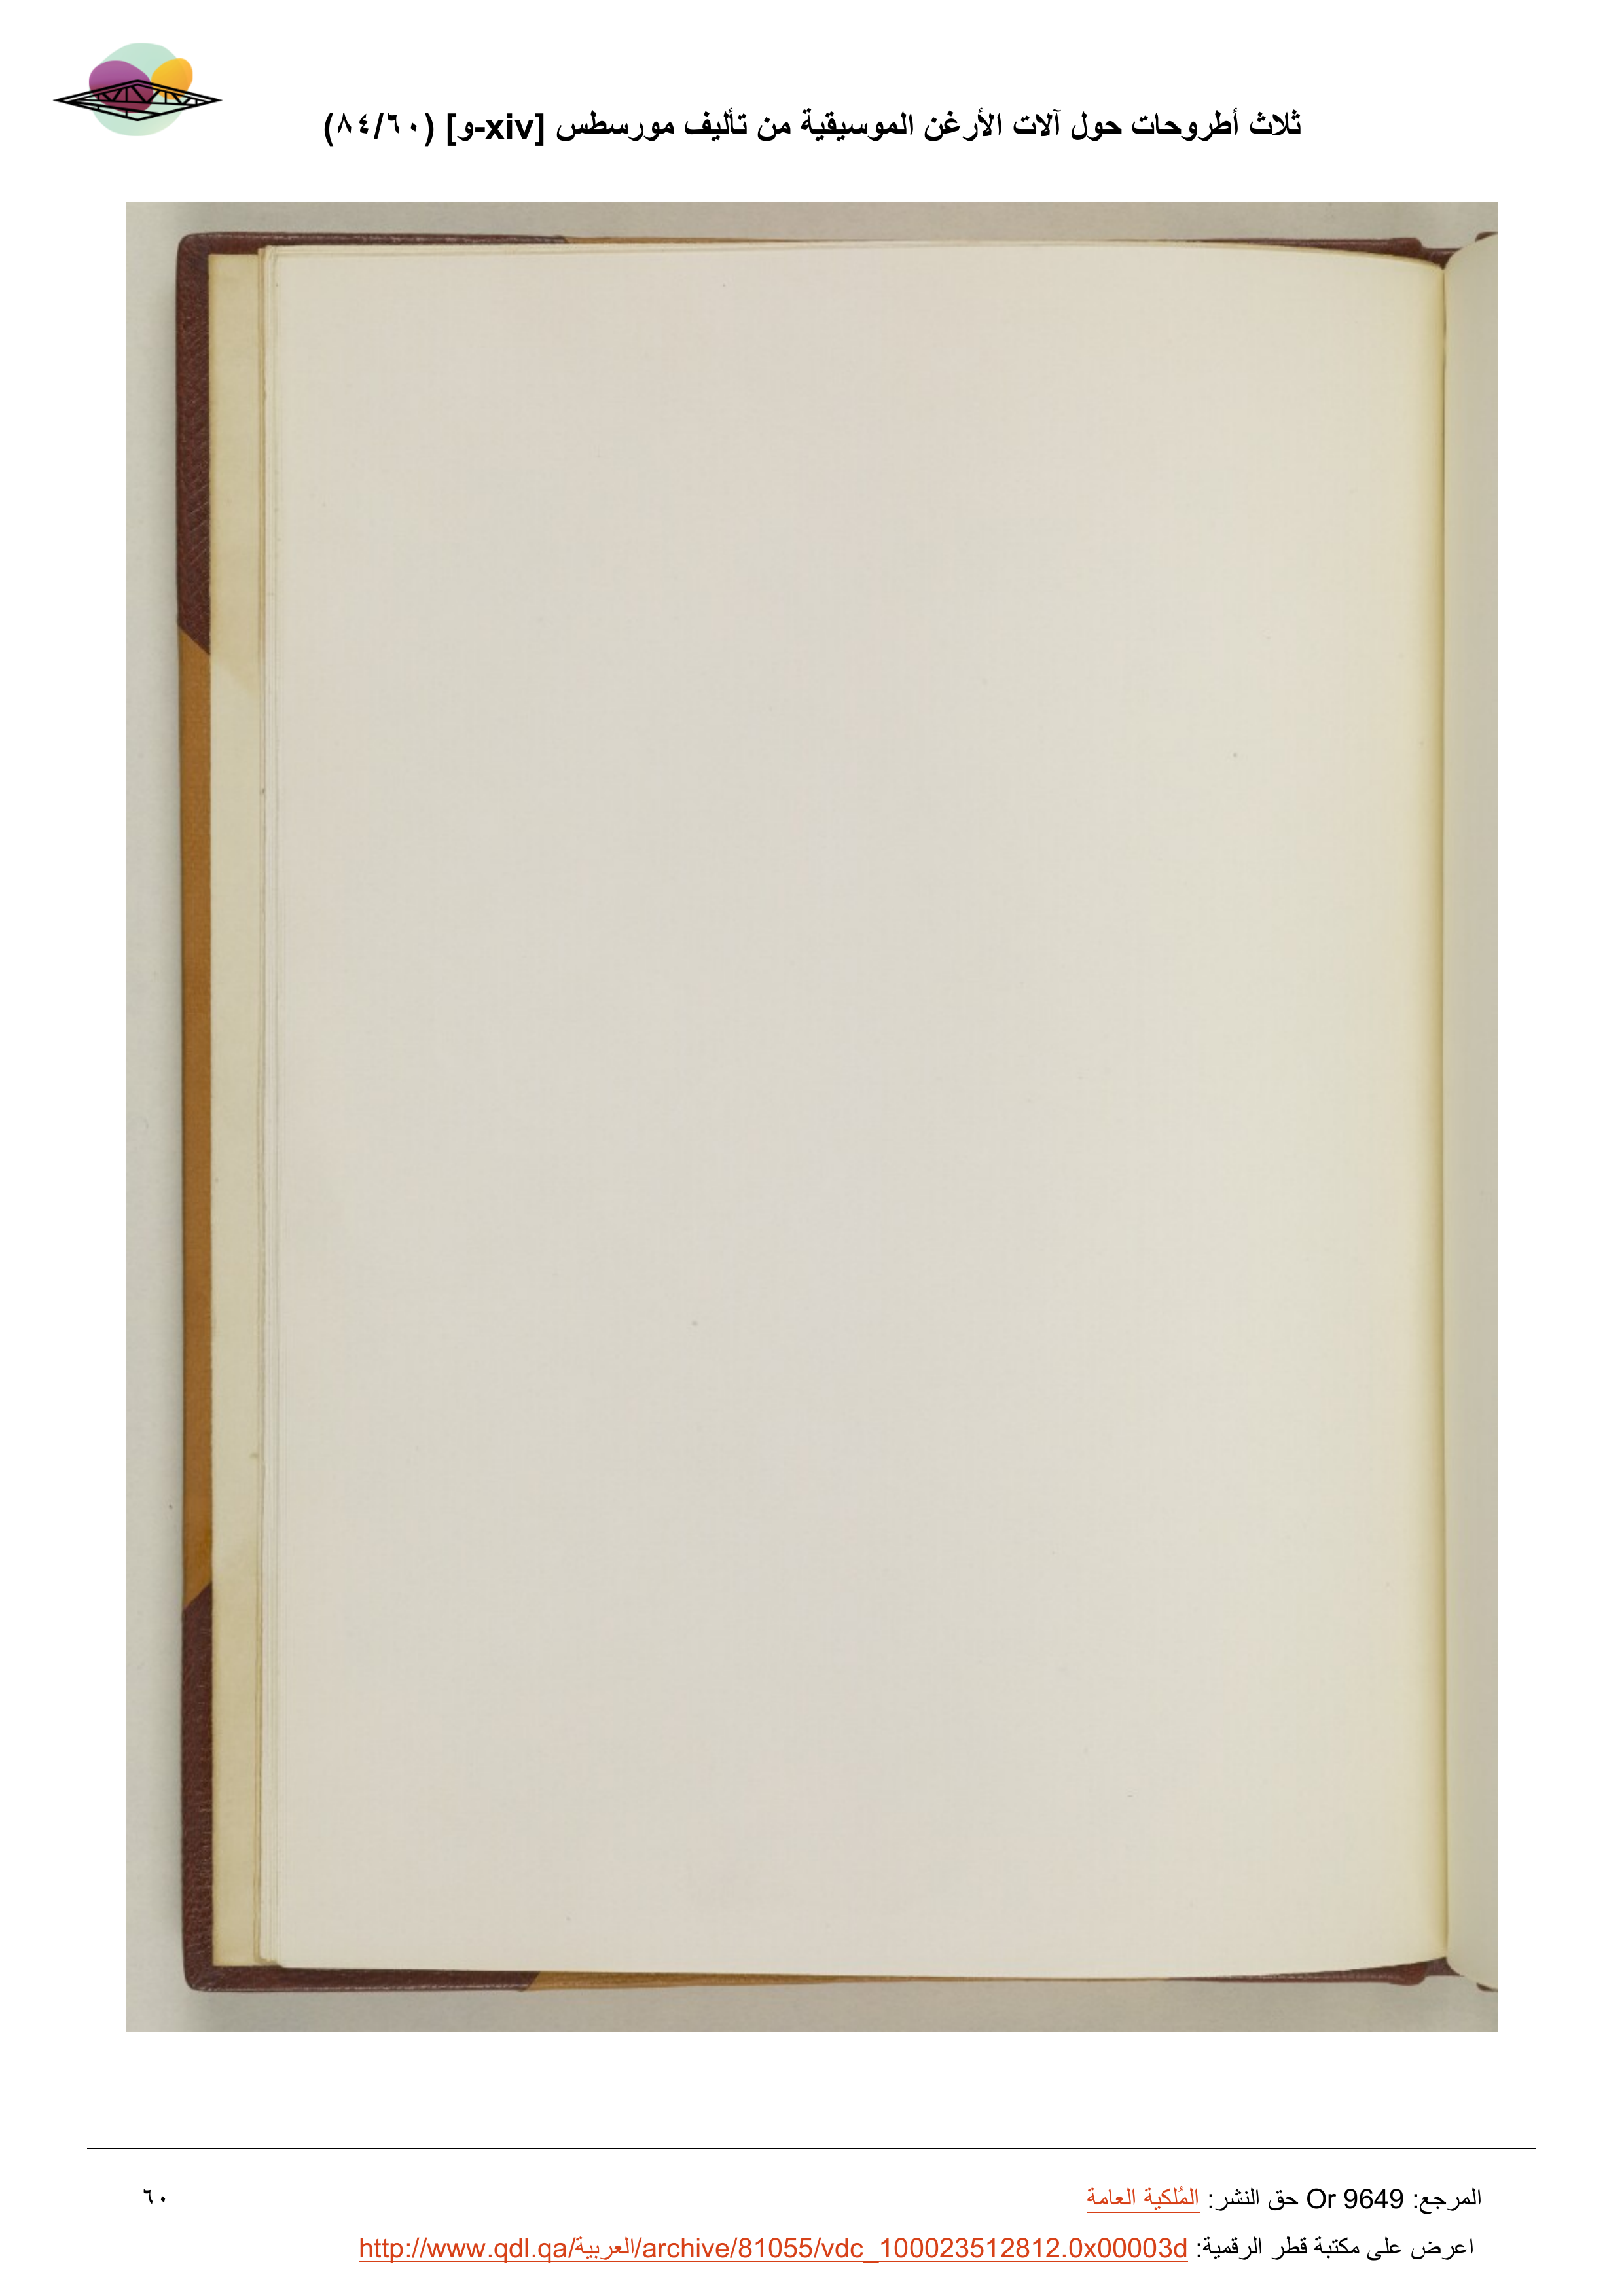 ثلاث أطروحات حول آلات الأرغن الموسيقية من تأليف مورسطس [xiv-و] (٨٤/٦٠)
المرجع: Or 9649 حق النشر: المُلكية العامة
٦٠
اعرض على مكتبة قطر الرقمية: http://www.qdl.qa/العربية/archive/81055/vdc_100023512812.0x00003d